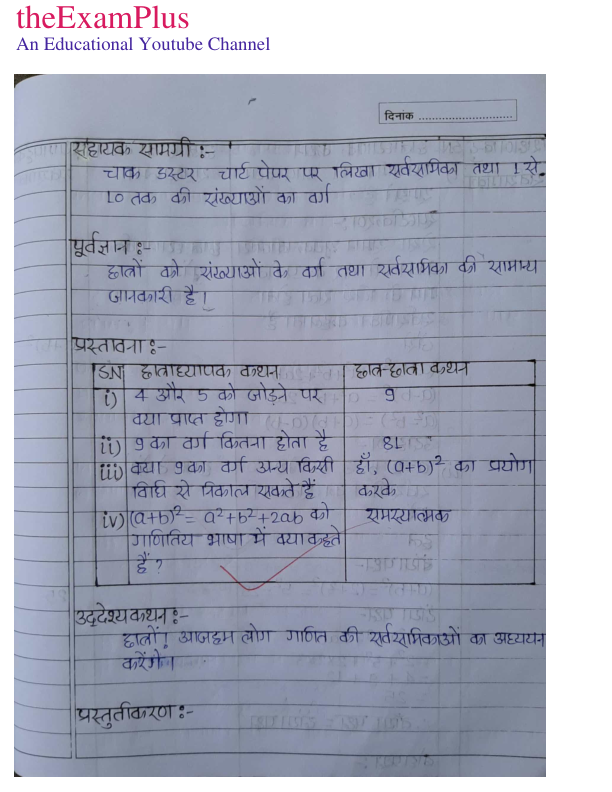 theExamPlus
An Educational Youtube Channel
दिनांक ............................
सहायक सामग्री :-
चाक डस्टर चार्ट पेपर पर लिखा सर्वसमिका तथा 1 से
10 तक की संख्याओं का वर्ग
पूर्वज्ञान :-
छात्रों को संख्याओं के वर्ग तथा सर्वसमिका की सामान्य
जानकारी है।
प्रस्तावना :-
S.N छात्राध्यापक कथन छात्र-छात्रा कथन
i) 4 और 5 को जोड़ने पर 9
क्या प्राप्त होगा
ii) 9 का वर्ग कितना होता है 81
iii) क्या 9 का वर्ग अन्य किसी हाँ, (a+b)² का प्रयोग
विधि से निकाल सकते हैं करके
iv) (a+b)² = a²+b²+2ab को समस्यात्मक
गणितिय भाषा में क्या कहते
हैं ?
उद्देश्य कथन :-
छात्रों! आज हम लोग गणित की सर्वसमिकाओं का अध्ययन
करेंगे।
प्रस्तुतीकरण :-